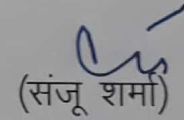 (संजू शर्मा)